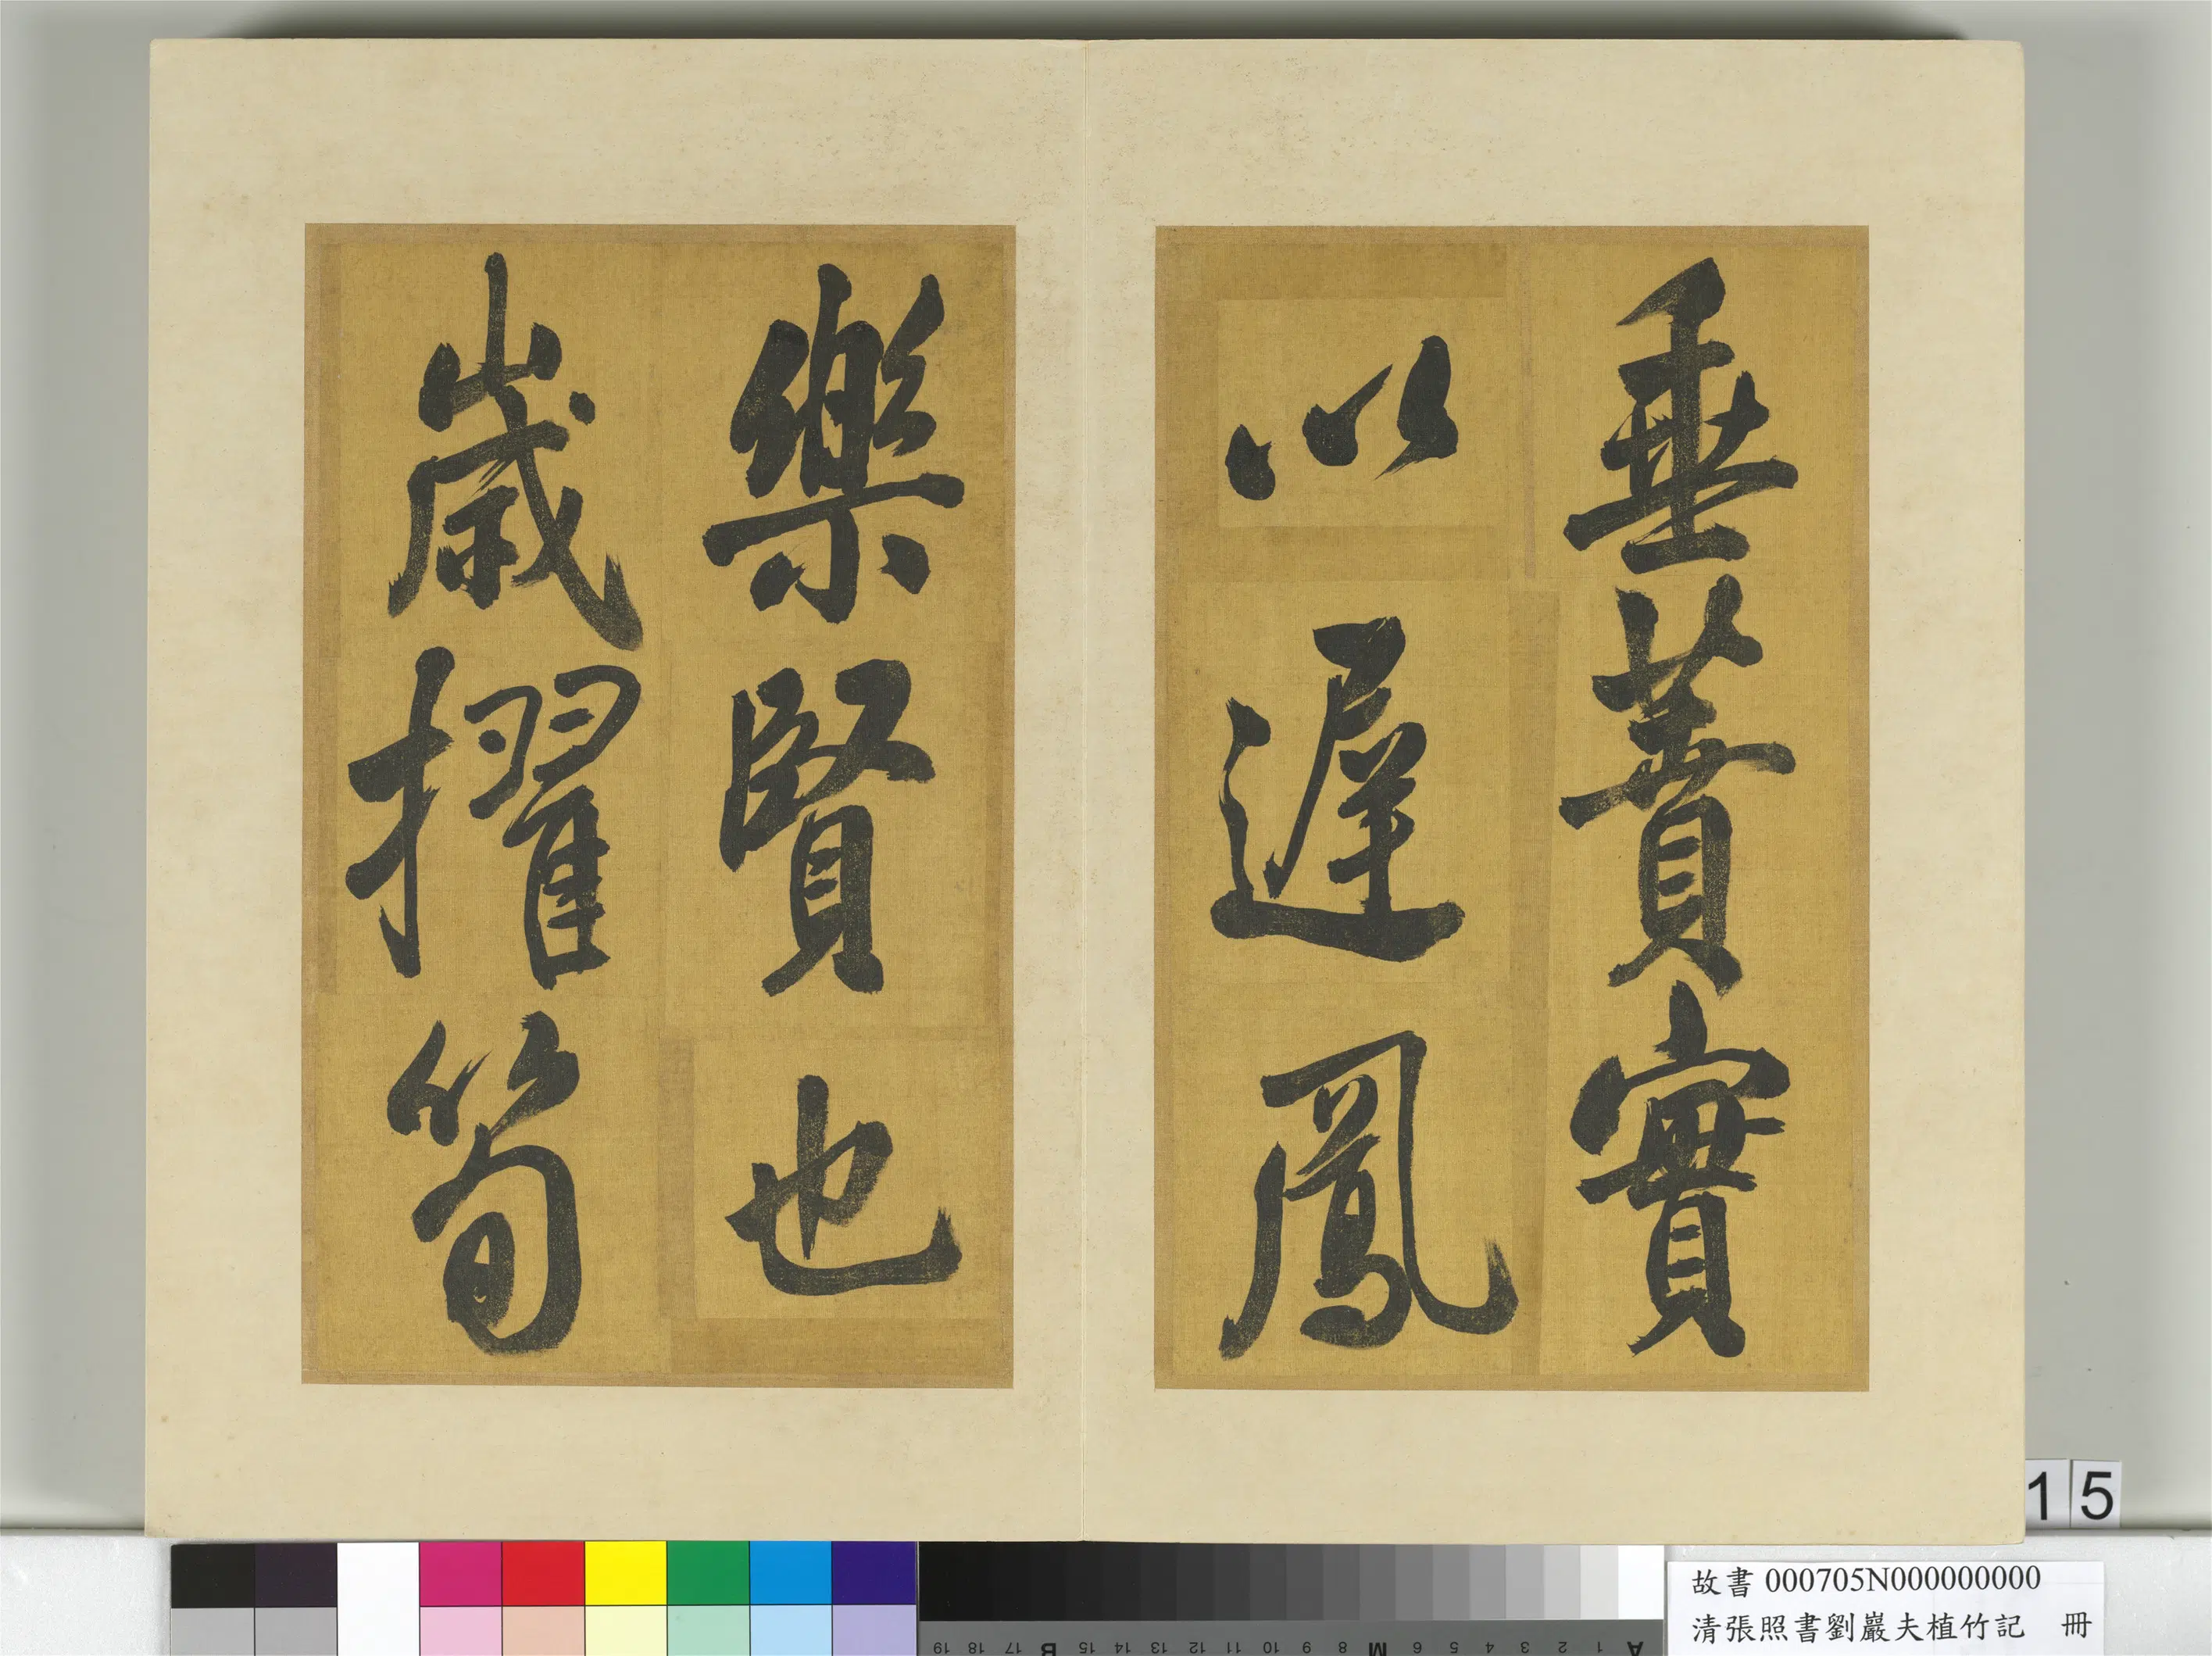 垂蕡實
以遲鳳
樂賢也
歲擢筍
15
故書 000705N000000000
清張照書劉巖夫植竹記 冊
A 1 2 3 4 5 6 M 8 9 10 11 12 13 14 15 B 17 18 19